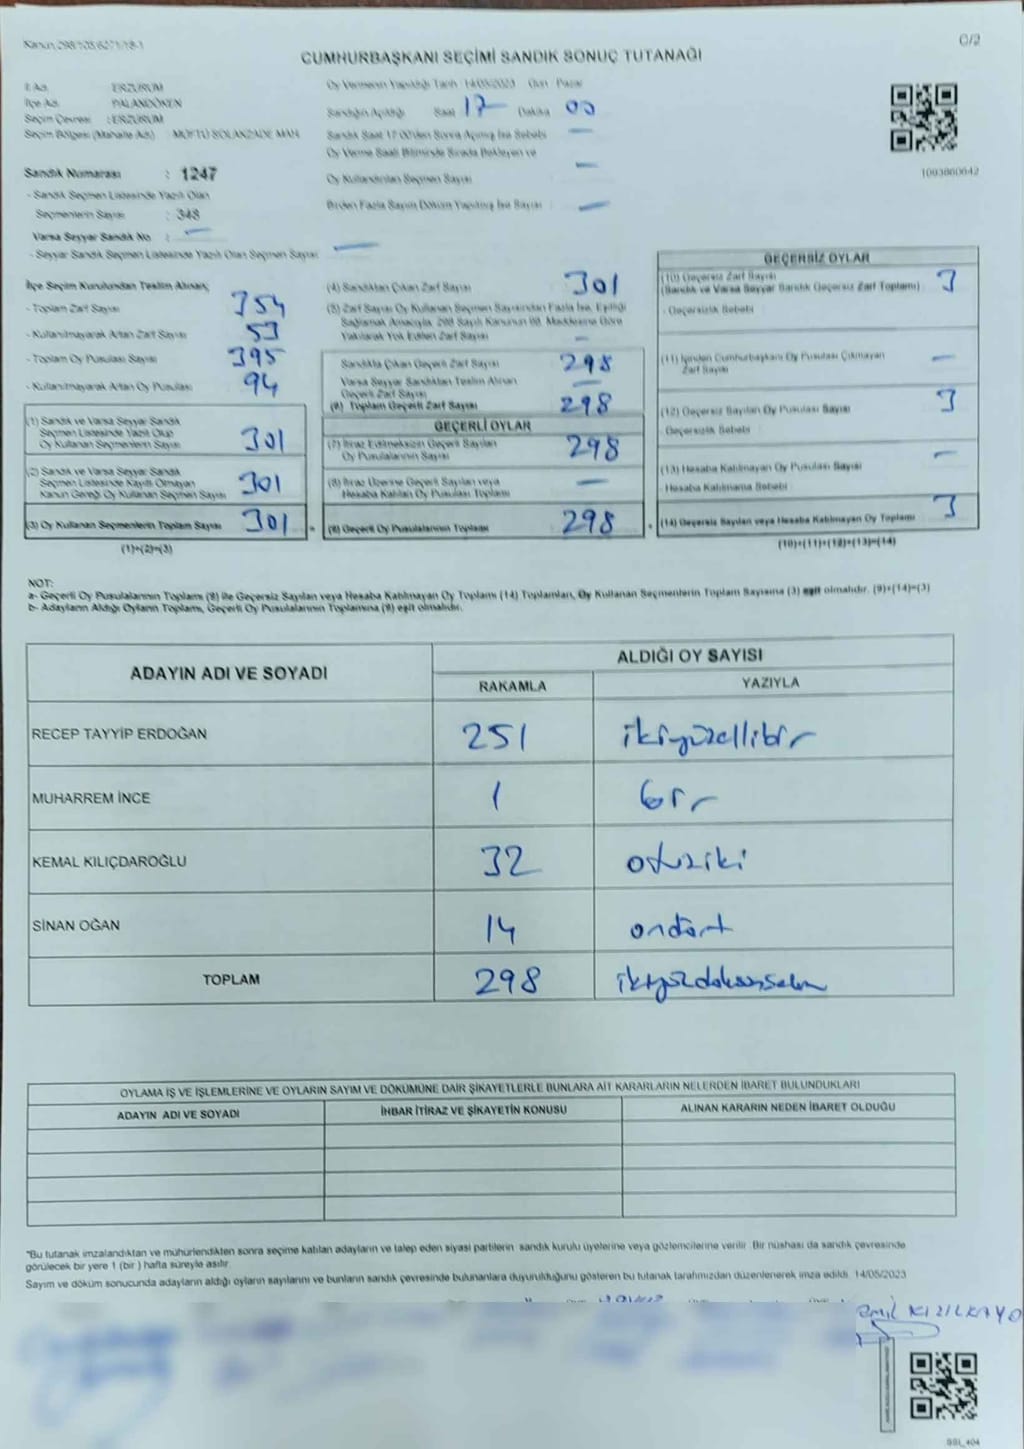 Kanun 298/105,6271/18-1
C/2
CUMHURBAŞKANI SEÇİMİ SANDIK SONUÇ TUTANAĞI
İl Adı : ERZURUM
İlçe Adı : PALANDÖKEN
Seçim Çevresi : ERZURUM
Seçim Bölgesi (Mahalle Adı) : MÜFTÜ SOLAKZADE MAH.
Sandık Numarası : 1247
- Sandık Seçmen Listesinde Yazılı Olan
Seçmenlerin Sayısı : 348
Varsa Seyyar Sandık No : —
- Seyyar Sandık Seçmen Listesinde Yazılı Olan Seçmen Sayısı —
Oy Vermenin Yapıldığı Tarih 14/05/2023 Gün Pazar
Sandığın Açıldığı Saat 17 Dakika 00
Sandık Saat 17.00'den Sonra Açılmış İse Sebebi —
Oy Verme Saati Bitiminde Sırada Bekleyen ve
Oy Kullandırılan Seçmen Sayısı —
Birden Fazla Sayım Döküm Yapılmış İse Sayısı : —
1093860642
İlçe Seçim Kurulundan Teslim Alınan;
- Toplam Zarf Sayısı 354
- Kullanılmayarak Artan Zarf Sayısı 53
- Toplam Oy Pusulası Sayısı 395
- Kullanılmayarak Artan Oy Pusulası 94
(1) Sandık ve Varsa Seyyar Sandık
Seçmen Listesinde Yazılı Olup
Oy Kullanan Seçmenlerin Sayısı 301
(2) Sandık ve Varsa Seyyar Sandık
Seçmen Listesinde Kayıtlı Olmayan
Kanun Gereği Oy Kullanan Seçmen Sayısı 301
(3) Oy Kullanan Seçmenlerin Toplam Sayısı 301 =
(1)+(2)=(3)
(4) Sandıktan Çıkan Zarf Sayısı 301
(5) Zarf Sayısı Oy Kullanan Seçmen Sayısından Fazla İse, Eşitliği
Sağlamak Amacıyla, 298 Sayılı Kanunun 98. Maddesine Göre
Yakılarak Yok Edilen Zarf Sayısı —
Sandıkta Çıkan Geçerli Zarf Sayısı 298
Varsa Seyyar Sandıktan Teslim Alınan
Geçerli Zarf Sayısı —
(6) Toplam Geçerli Zarf Sayısı 298
GEÇERLİ OYLAR
(7) İtiraz Edilmeksizin Geçerli Sayılan
Oy Pusulalarının Sayısı 298
(8) İtiraz Üzerine Geçerli Sayılan veya
Hesaba Katılan Oy Pusulası Toplamı —
(9) Geçerli Oy Pusulalarının Toplamı 298 +
GEÇERSİZ OYLAR
(10) Geçersiz Zarf Sayısı
(Sandık ve Varsa Seyyar Sandık Geçersiz Zarf Toplamı) 3
- Geçersizlik Sebebi
(11) İçinden Cumhurbaşkanı Oy Pusulası Çıkmayan
Zarf Sayısı —
(12) Geçersiz Sayılan Oy Pusulası Sayısı 3
- Geçersizlik Sebebi
(13) Hesaba Katılmayan Oy Pusulası Sayısı —
- Hesaba Katılmama Sebebi
(14) Geçersiz Sayılan veya Hesaba Katılmayan Oy Toplamı 3
(10)+(11)+(12)+(13)=(14)
NOT:
a- Geçerli Oy Pusulalarının Toplamı (9) ile Geçersiz Sayılan veya Hesaba Katılmayan Oy Toplamı (14) Toplamları, Oy Kullanan Seçmenlerin Toplam Sayısına (3) eşit olmalıdır. (9)+(14)=(3)
b- Adayların Aldığı Oyların Toplamı, Geçerli Oy Pusulalarının Toplamına (9) eşit olmalıdır.
ADAYIN ADI VE SOYADI
ALDIĞI OY SAYISI
RAKAMLA YAZIYLA
RECEP TAYYİP ERDOĞAN 251 ikiyüzellibir
MUHARREM İNCE 1 bir
KEMAL KILIÇDAROĞLU 32 otuziki
SİNAN OĞAN 14 ondört
TOPLAM 298 ikiyüzdoksansekiz
OYLAMA İŞ VE İŞLEMLERİNE VE OYLARIN SAYIM VE DÖKÜMÜNE DAİR ŞİKAYETLERLE BUNLARA AİT KARARLARIN NELERDEN İBARET BULUNDUKLARI
ADAYIN ADI VE SOYADI İHBAR İTİRAZ VE ŞİKAYETİN KONUSU ALINAN KARARIN NEDEN İBARET OLDUĞU
*Bu tutanak imzalandıktan ve mühürlendikten sonra seçime katılan adayların ve talep eden siyasi partilerin sandık kurulu üyelerine veya gözlemcilerine verilir. Bir nüshası da sandık çevresinde
görülecek bir yere 1 (bir ) hafta süreyle asılır.
Sayım ve döküm sonucunda adayların aldığı oyların sayılarını ve bunların sandık çevresinde bulunanlara duyurulduğunu gösteren bu tutanak tarafımızdan düzenlenerek imza edildi. 14/05/2023
KIZILKAYA
SSI_404